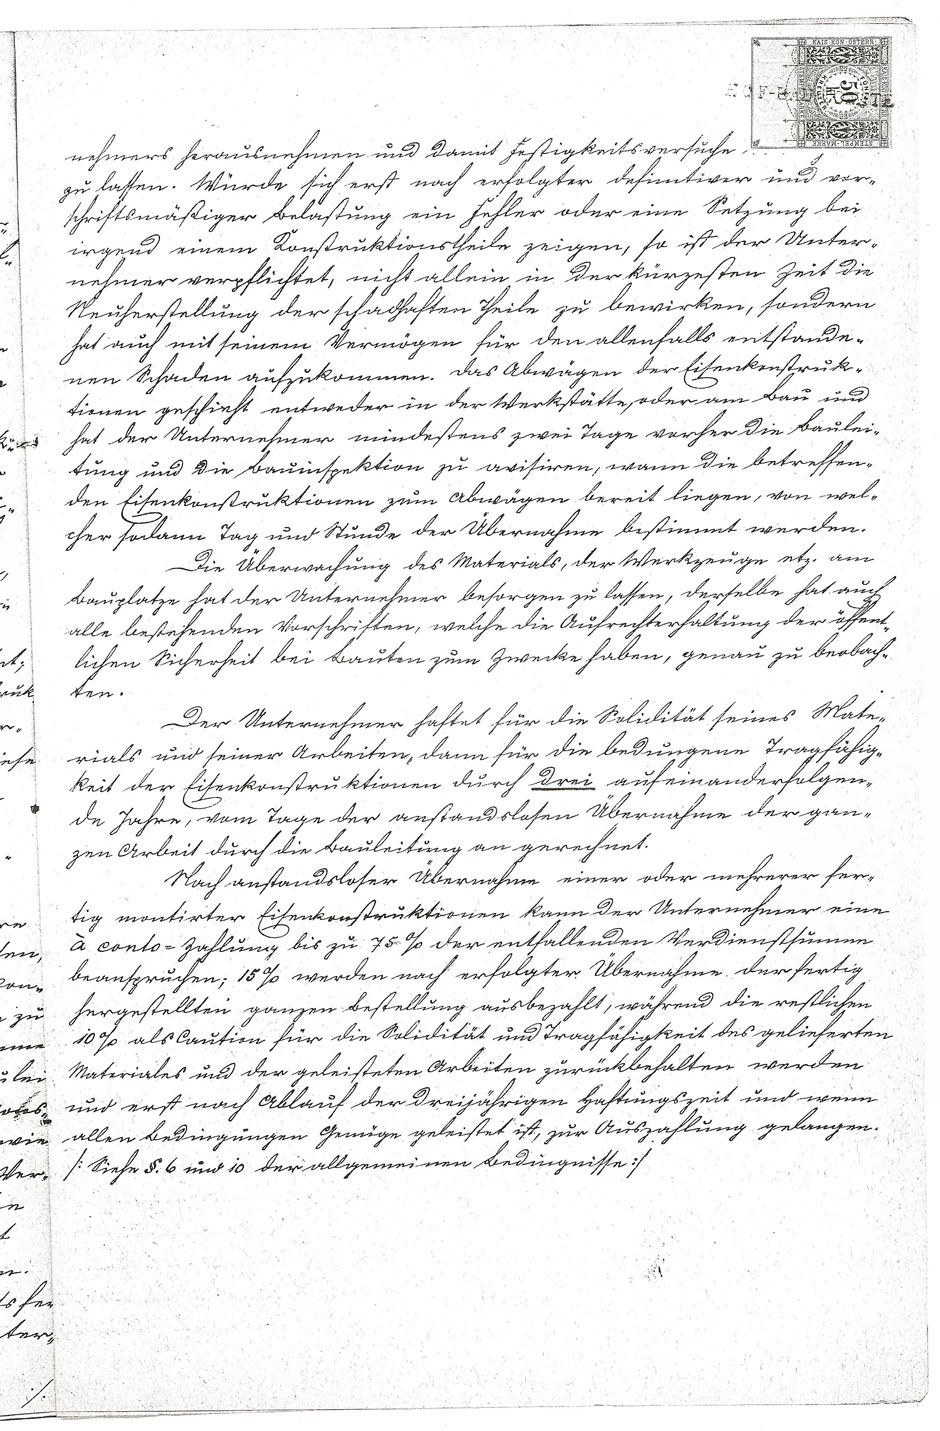 KAIS. KÖN. ÖSTERR.
50
STEMPEL-MARKE
nehmers herausnehmen und damit Festigkeitsversuche
zu lassen. Würde sich erst nach erfolgter definitiver und vor-
schriftsmäßiger Belastung ein Fehler oder eine Setzung bei
irgend einem Konstruktionstheile zeigen, so ist der Unter-
nehmer verpflichtet, nicht allein in der kürzesten Zeit die
Neuherstellung der schadhaften Theile zu bewirken, sondern
hat auch mit seinem Vermögen für den allenfalls entstande-
nen Schaden aufzukommen. Das Abwägen der Eisenkonstruk-
tionen geschieht entweder in der Werkstätte, oder am Bau und
hat der Unternehmer mindestens zwei Tage vorher die Baulei-
tung und die Bauinspektion zu avisiren, wann die betreffen-
den Eisenkonstruktionen zum Abwägen bereit liegen, von wel-
cher sodann Tag und Stunde der Übernahme bestimmt werden.
Die Überwachung des Materials, der Werkzeuge etz. am
Bauplatze hat der Unternehmer besorgen zu lassen, derselbe hat auch
alle bestehenden Vorschriften, welche die Aufrechterhaltung der öffent-
lichen Sicherheit bei Bauten zum Zwecke haben, genau zu beobach-
ten.
Der Unternehmer haftet für die Solidität seines Mate-
rials und seiner Arbeiten, dann für die bedungene Tragfähig-
keit der Eisenkonstruktionen durch drei aufeinanderfolgen-
de Jahre, vom Tage der anstandslosen Übernahme der gan-
zen Arbeit durch die Bauleitung an gerechnet.
Nach anstandsloser Übernahme einer oder mehrerer fer-
tig montirter Eisenkonstruktionen kann der Unternehmer eine
à conto=Zahlung bis zu 75% der entfallenden Verdienstsumme
beanspruchen; 15% werden nach erfolgter Übernahme der fertig
hergestellten ganzen Bestellung ausbezahlt, während die restlichen
10% als Caution für die Solidität und Tragfähigkeit des gelieferten
Materiales und der geleisteten Arbeiten zurückbehalten werden
und erst nach Ablauf der dreijährigen Haftungszeit und wenn
allen Bedingungen Genüge geleistet ist, zur Auszahlung gelangen.
/: Siehe §. 6 und 10 der allgemeinen Bedingnisse :/